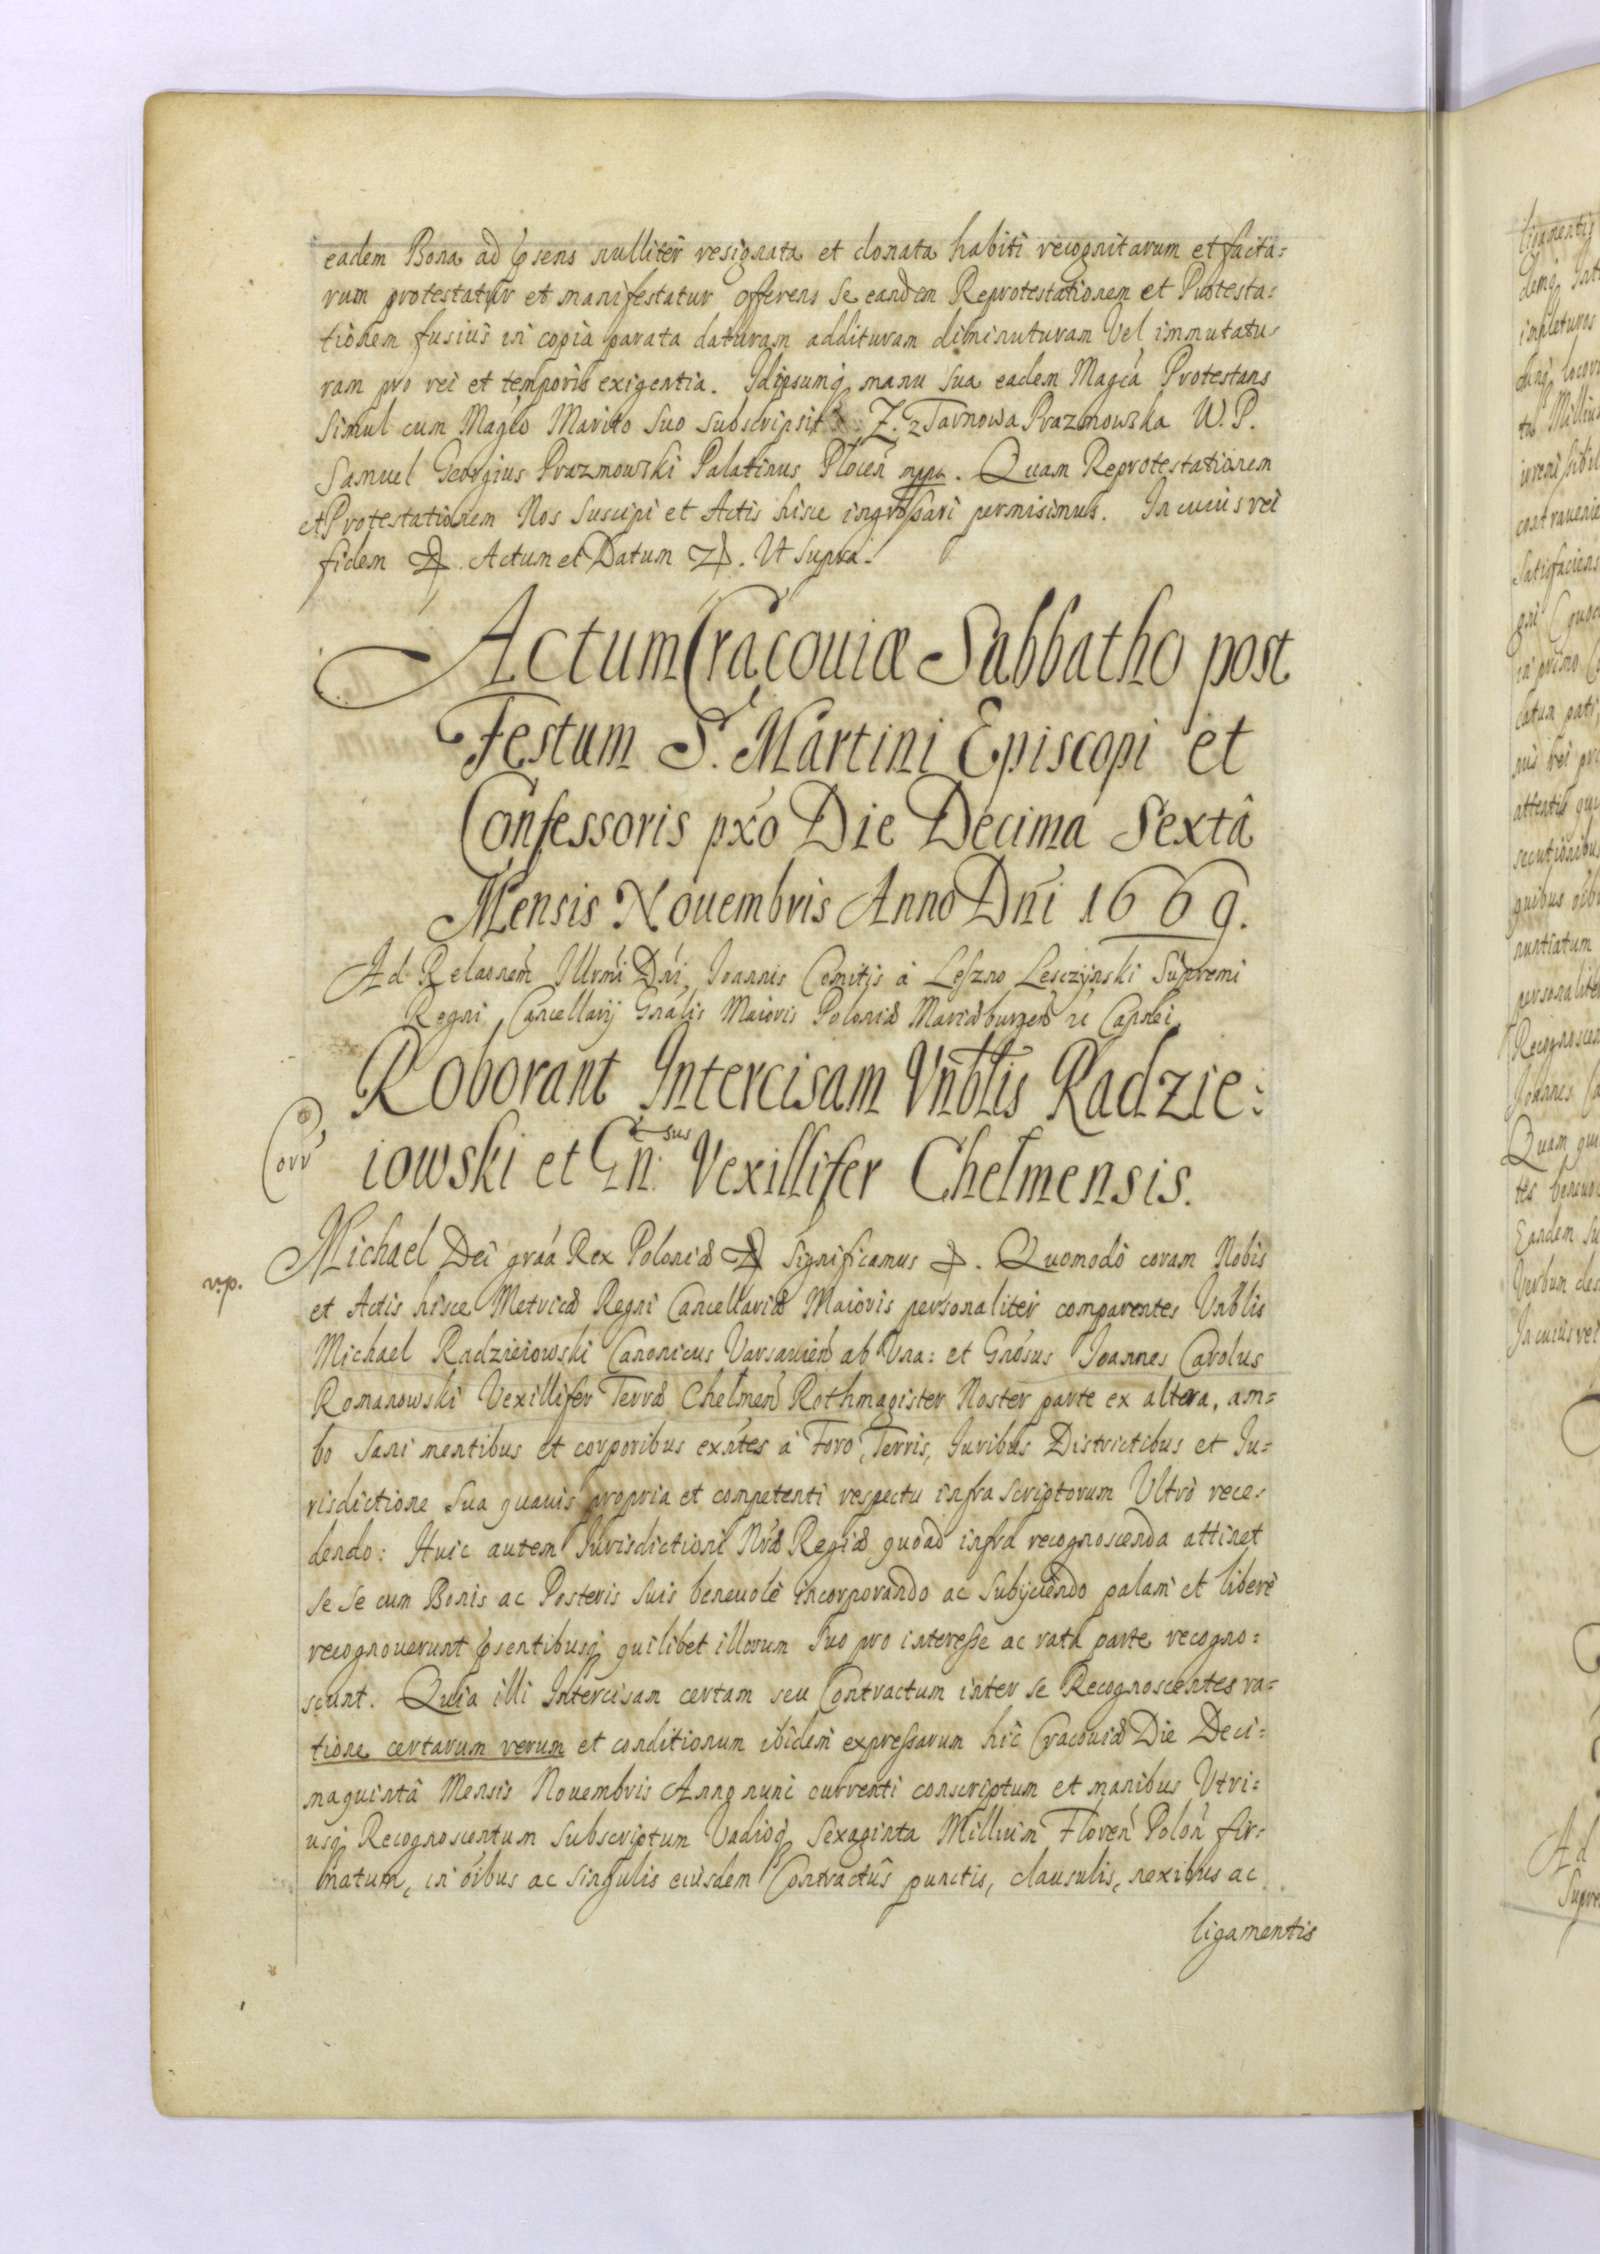 eadem Bona ad p̄sens nulliter resignata et donata habiti recognitarum et facta=
rum protestatur et manifestatur offerens se eandem Reprotestationem et Protesta=
tionem fusius in copia parata daturam addituram diminuturam Vel immutatu=
ram pro rei et temporis exigentia. Idipsumq, manu sua eadem Magca Protestans
simul cum Magco Marito suo subscripsit. Z. z Tarnowa Prazmowska W. P.
Samuel Georgius Prazmowski Palatinus Plocen mpp. Quam Reprotestationem
et Protestationem Nos suscipi et Actis hisce ingrossari permisimus. In cuius rei
fidem &. Actum et Datum &. Ut supra.
Actum Cracouiæ Sabbatho post
Festum S. Martini Episcopi et
Confessoris pxo Die Decima Sextâ
Mensis Nouembris Anno Dni 1669.
Ad Relaonem Illrmi Dni Joannis Comitis à Leszno Lesczynski Supremi
Regni Cancellarij Gnalis Maioris Poloniæ Mariæburgen Capnei
Roborant Intercisam Vnblis Radzie=
iowski et Gn:sus Vexillifer Chelmensis.
Corr
Michael Dei graa Rex Poloniæ & significamus &. Quomodo coram Nobis
rp.
et Actis hisce Metricæ Regni Cancellariæ Maioris personaliter comparentes Vnblis
Michael Radzieiowski Canonicus Varsauien ab Vna: et Gnosus Joannes Carolus
Romanowski Vexillifer Terræ Chelmen Rothmagister Noster parte ex altera, am=
bo sani mentibus et corporibus exntes à Foro, Terris, Juribus Districtibus et Ju=
risdictione sua quauis propria et competenti respectu infra scriptorum Ultro rece=
dendo: Huic autem Jurisdictioni Nræ Regiæ quoad infra recognoscenda attinet
se se cum Bonis ac Posteris suis beneuole incorporando ac subijciendo palam et libere
recognouerunt p̄sentibusq, quilibet illorum suo pro interesse ac rata parte recogno=
scunt. Quia illi Intercisam certam seu Contractum inter se Recognoscentes ra=
tione certarum rerum et conditionum ibidem expressarum hic Cracouiæ Die Deci=
maquintâ Mensis Nouembris Anno nunc currenti conscriptum et manibus Vtri=
usq, Recognoscentum subscriptum Vadioq, Sexaginta Millium Floren Polon fir=
matum, in oibus ac singulis eiusdem Contractûs punctis, clausulis, nexibus ac
ligamentis